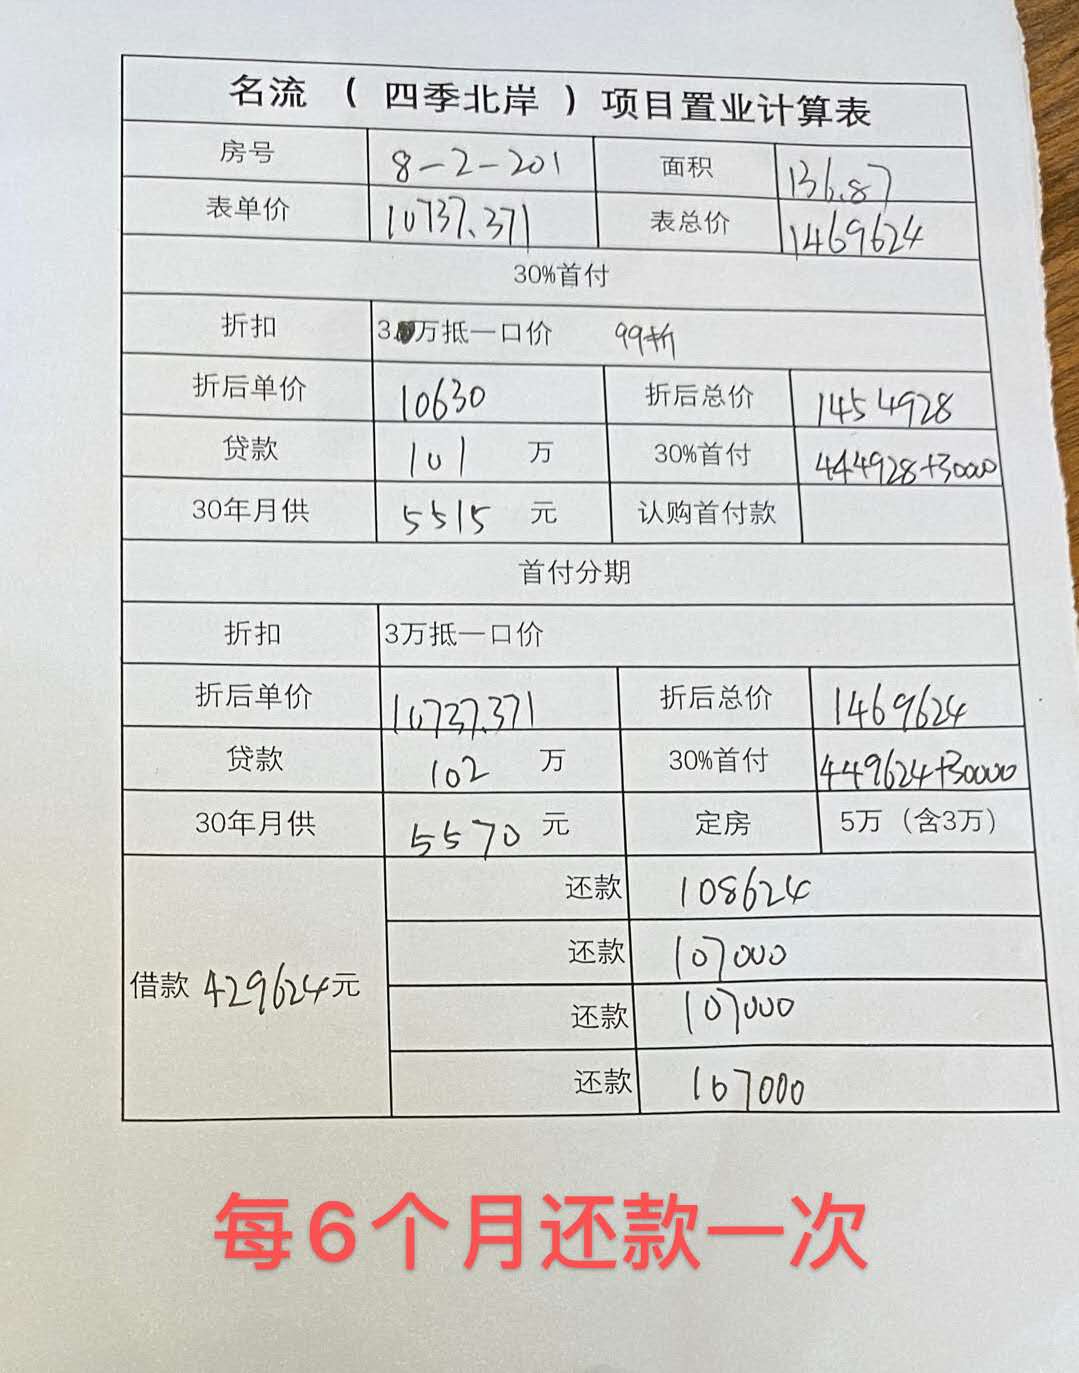 名流 （ 四季北岸 ）项目置业计算表
房号 8-2-201 面积 136.87
表单价 10737.371 表总价 1469624
30%首付
折扣 3万抵一口价 99折
折后单价 10630 折后总价 1454928
贷款 101 万 30%首付 444928+30000
30年月供 5515 元 认购首付款
首付分期
折扣 3万抵一口价
折后单价 10737.371 折后总价 1469624
贷款 102 万 30%首付 449624+30000
30年月供 5570 元 定房 5万（含3万）
还款 108624
还款 107000
借款 429624元
还款 107000
还款 107000
每6个月还款一次